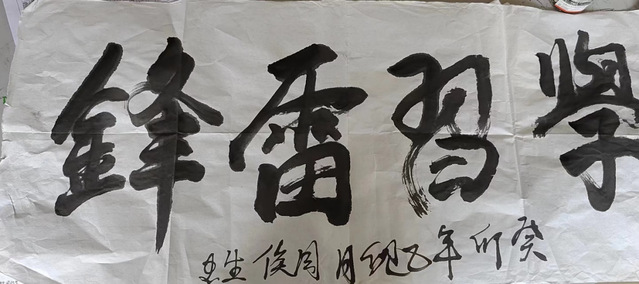 學習雷鋒
癸卯年月周生书